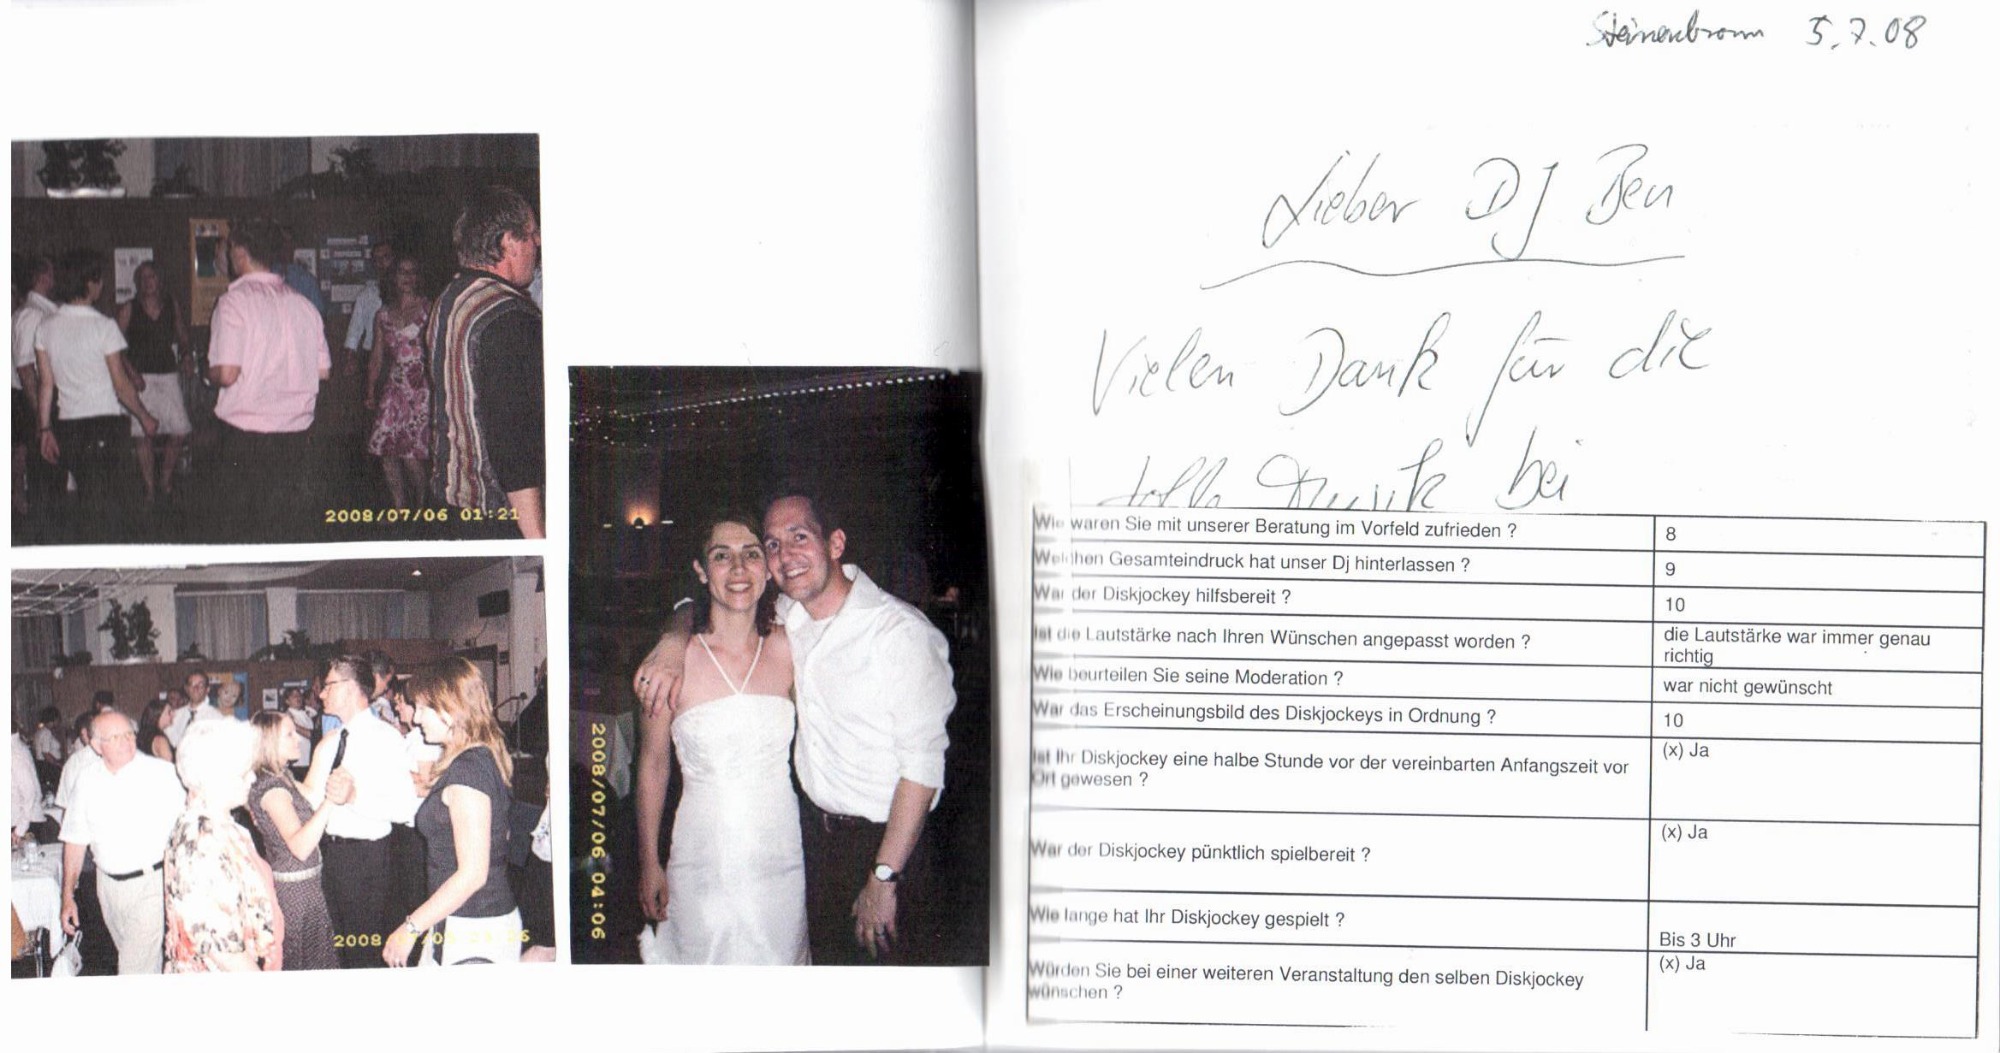 2008/07/06 01:21
2008/07/06 04:06
Steinenbronn 5.7.08
Lieber DJ Ben
Vielen Dank für die
tolle Musik bei
Wie waren Sie mit unserer Beratung im Vorfeld zufrieden ? 8
Welchen Gesamteindruck hat unser Dj hinterlassen ? 9
War der Diskjockey hilfsbereit ? 10
Ist die Lautstärke nach Ihren Wünschen angepasst worden ? die Lautstärke war immer genau
richtig
Wie beurteilen Sie seine Moderation ? war nicht gewünscht
War das Erscheinungsbild des Diskjockeys in Ordnung ? 10
Ist Ihr Diskjockey eine halbe Stunde vor der vereinbarten Anfangszeit vor (x) Ja
Ort gewesen ?
War der Diskjockey pünktlich spielbereit ? (x) Ja
Wie lange hat Ihr Diskjockey gespielt ? Bis 3 Uhr
Würden Sie bei einer weiteren Veranstaltung den selben Diskjockey (x) Ja
wünschen ?